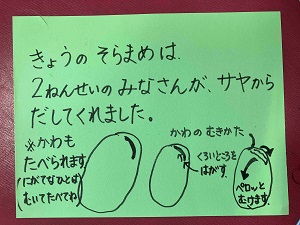 きょうの そらまめは
2ねんせいの みなさんが、サヤから
だしてくれました。
※かわも
たべられます
(にがてなひとは
むいてたべてね)
かわのむきかた
くろいところを
はがす
ペロッと
むけます